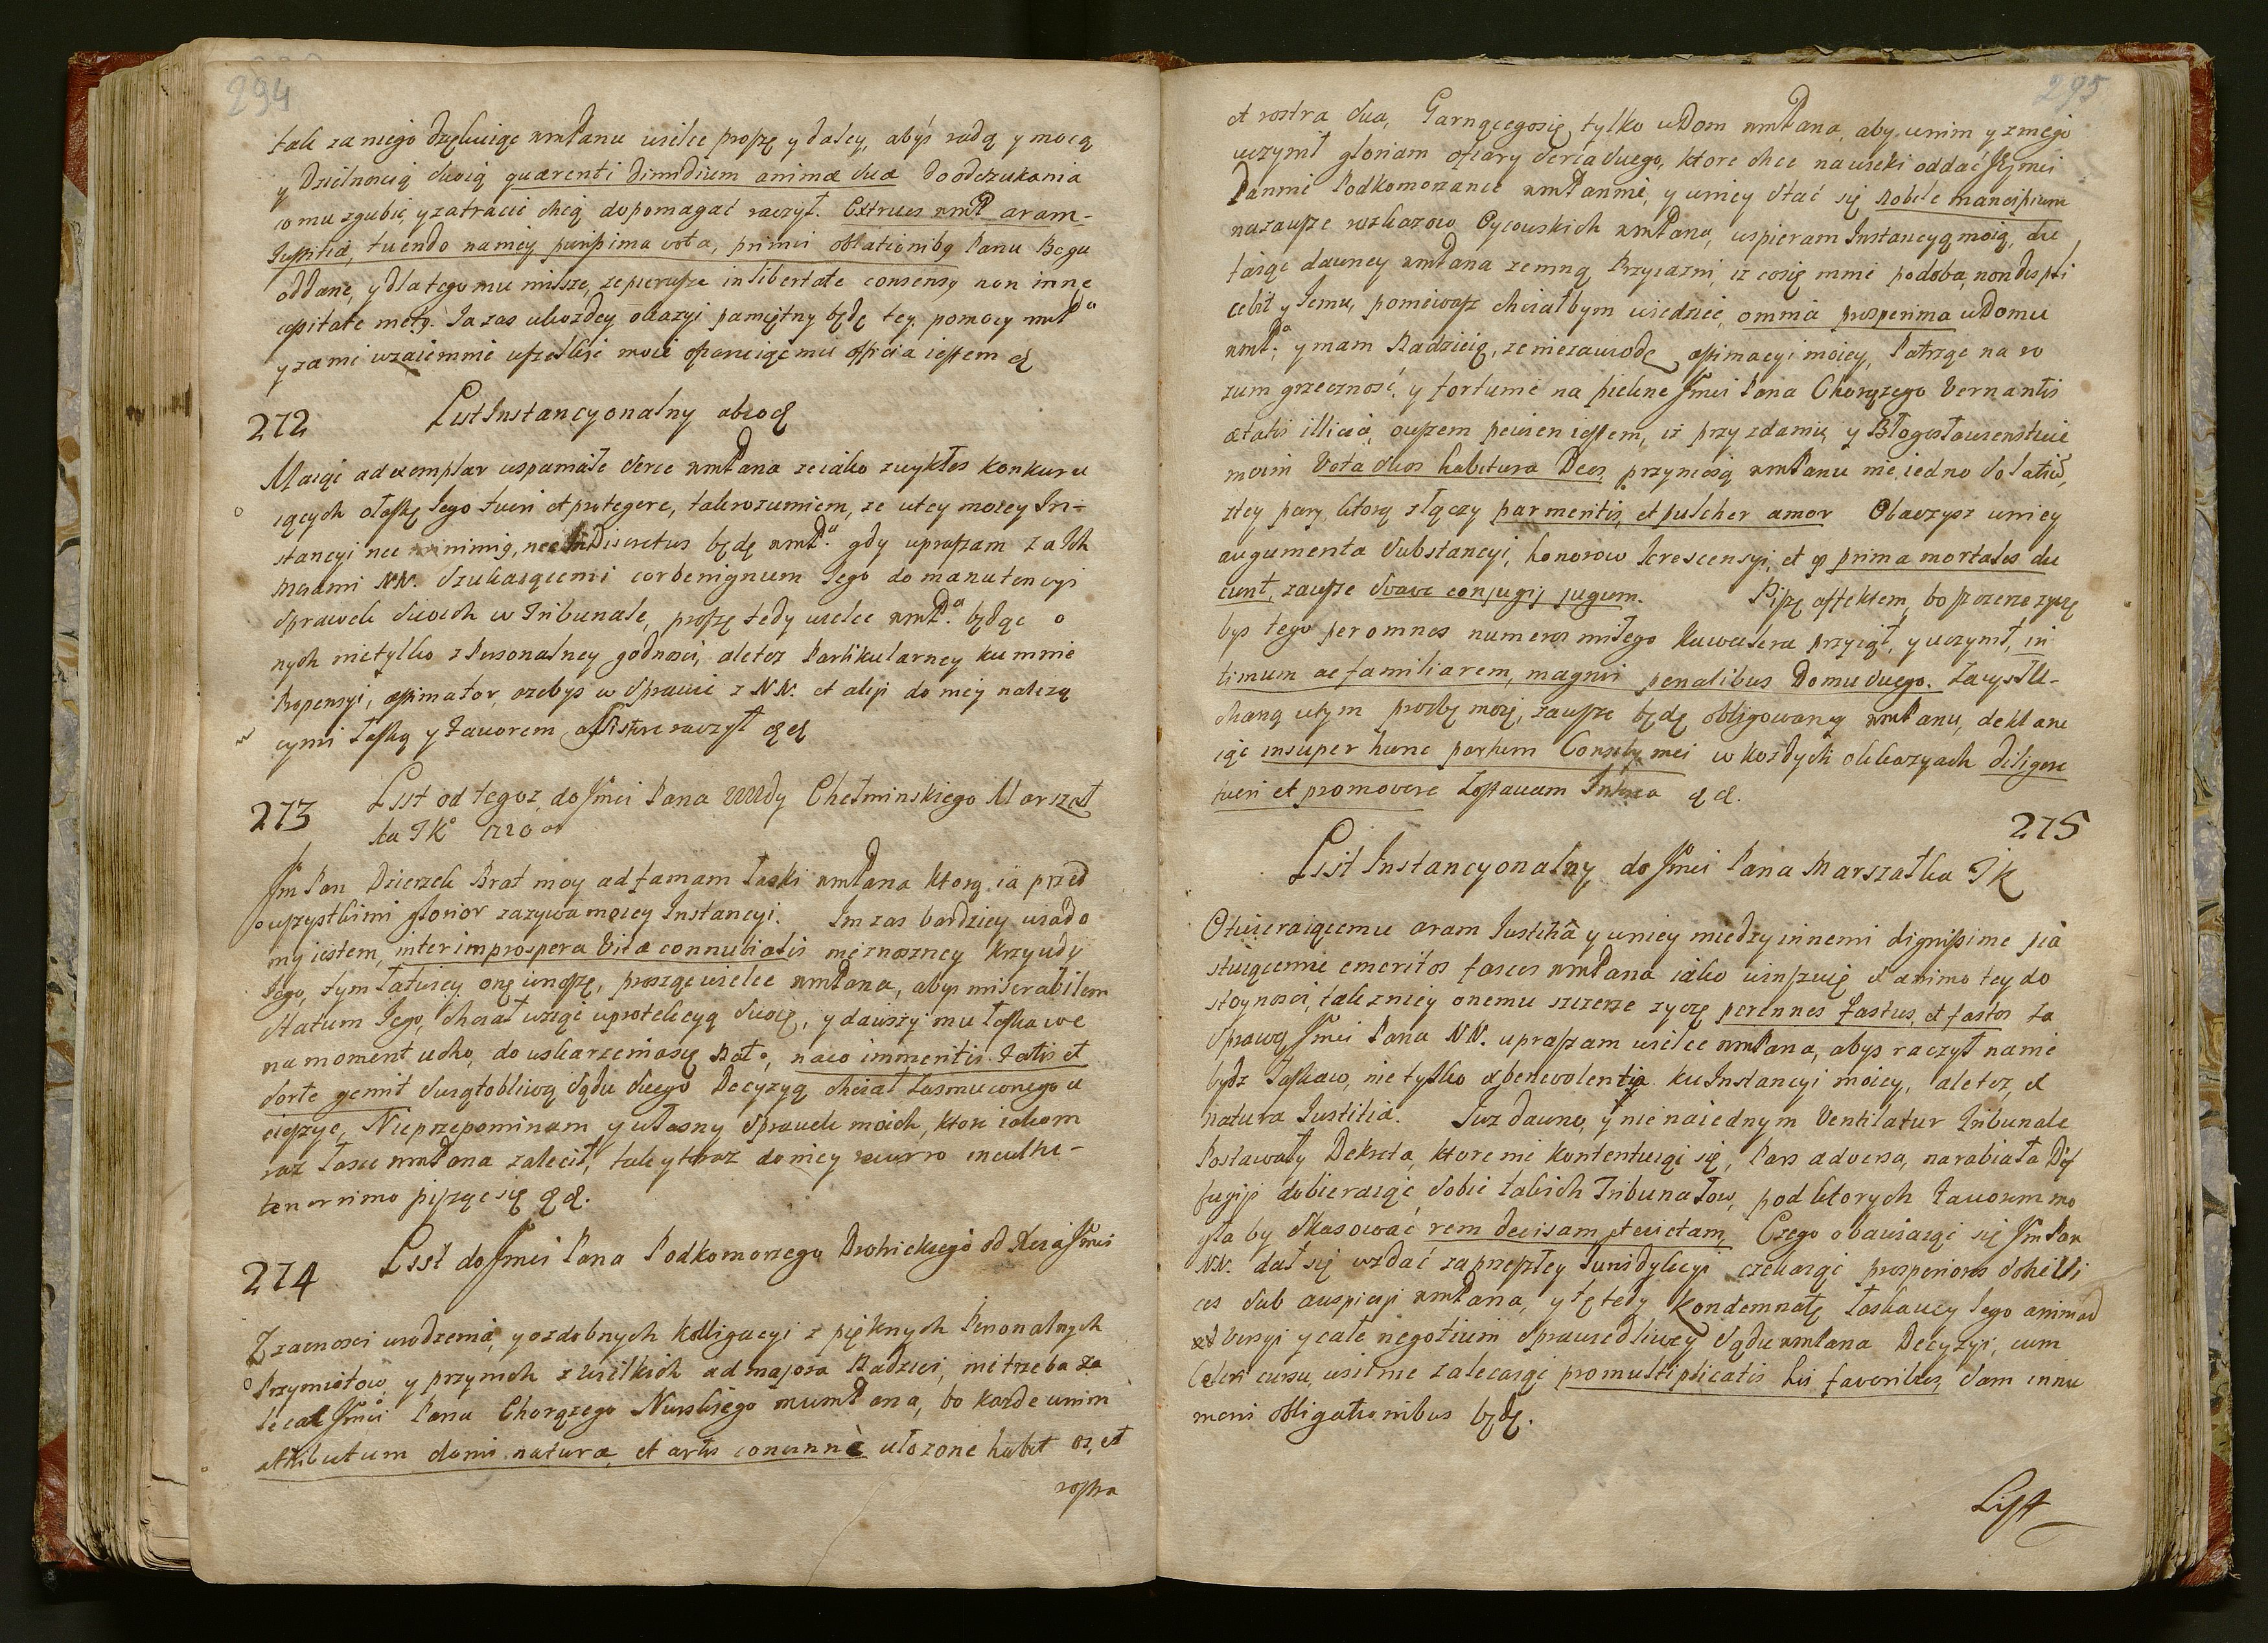 294
tak za niego dzękuiąc wmPanu wielce proszę y daley, abyś radą y mocą
y Dzielnoscią swoią quærenti dimidium animæ suæ do odszukania
co mu zgubić y zatracic chcą dopomagać raczył. Extrues wmP aram
Iustitiæ, tuendo namiey purissima vota, primis oblationibq Panu Bogu
oddane, y dla tego mu milsze, ze pierwsze in libertate consensq non in ne
cessitate metq. Ja zas wkozdey okazyi pamiętny będę tey pomocy wmPa
y za mi wzaiemnie wszelkie moie ofiaruiąc mu officia iestem &
272 List Instancyonalny ab eod
Maiąc ad exemplar wspaniałe serce wmPana ze iako zwykłes konkuru
iących o łaskę Iego tueri et protegere, tak rozumiem, ze w tey moiey In-
stancyi nec nimig, nec Indiscretus będę wmPa gdy upraszam za Ich
Msciami NN. Szukaiącemi cor benignum Iego do manutencyi
Spraweh swoich w Tribunale, proszę tedy wielce wmPa. będąc o
nych nietylko z Personalney godnosci, ale tez Partikularney ku mnie
Propensyi, æstimator, ozebys w Sprawie z NN. et alijs do niey nalezą
cymi Łaską y Faworem assistere raczył &&
273 List od tegoz do Jmci Pana Wdy Chełminskiego Marszał
ka TKo 1720
Jm Pan Dzierzek Brat moy ad famam Łaski wmPana ktorą ia przed
wszystkimi glorior zazywa moiey Instancyi. Im zas bardziey wiado
my iestem, inter improspera Vitæ connubialis nieznoszney krzywdy
Iego, tym łatwiey onę wnoszę, proszęc wielce wmPana, abys miserabilem
statum Iego, chciał wziąc w protekcyą swoię, y dawszy mu łaskawe
na moment ucho, do uskarzenia się Rat, naco immeritis Fatis et
sorte gemit swiątobliwą sądu swego Decyzyą chciał zasmuconego u
cieszyc, Nieprzepominam y własny Spraweh moich, ktore iakom
raz Łasce wmPana zalecił, tak y teraz do niey recurro inculte-
tenerrimo pisząc się &&.
274 List do Jmci Pana Podkomorzego Drohickiego od Xcia Jmci
Zzacnosci urodzenia, y ozdobnych kolligacyi z pięknych Personalnych
Przymiotow y przymch z wielkich ad majora Nadziei, nie trzeba za
lecac Jmci Pana Chorązego Nurskiego wmPana, bo kazde w nim
attributum donis naturæ et artis concinnè ułozone habet os, et
rostra
295
et rostra sua, Garnącegosię tylko w Dom wmPana aby w nim y z niego
uczynił gloriam ofiary serca swego, ktore chce na wieki oddać Jey mci
Pannie Podkomorzance wmPannie, y u niey stać się nobile mancipium
na zawsze rozkazow Oycowskich wmPana, wspieram Instancyą moią, du
faiąc dawney wmPana zemną Przyiazni, iz co się mnie podoba, non displi
cebit y Iemu, poniewasz chciałbym wiedziec omnia prosperrima w Domu
wmPa. y mam Nadzieią, ze niezawiodę æstimacyi moiey, Patrząc na ro
zum grzecznosć, y fortunę na piekne Jmci Pana Chorązego Vernantis
ætatis illicia, owszem pewien iestem, iz przy zdaniu y Błogosławienstwie
moim Vota suos habitura Deos, przyniosą wmPanu nie iedno
złey pary, ktorą złączy par meritis, et pulcher amor Obaczysz w niey
augumenta Substancyi, honorow krescensyi, et q prima mortales du
cunt, zawsze suave conjugij jugum. Piszę affektem, bo szczerze zyczę
bys tego per omnes numeros miłego kawalera przyiął, y uczynił, in
timum ac familiarem, magnis penatibus Domu swego. Za wysłu-
chaną w tym prozbę moię, zawsze będę obligowany wmPanu, deklaru
iąc insuper hunc partum Consily mei w kozdych okkazyach diligere
tueri et promovere zostawam && .
275
List Instancyonalny do Jmci Pana Marszałka T K
Otwieraiącemu aram Iustitiæ y w niey miedzy innemi dignissime pia
stuiącemu emeritos fasces wmPana iako winszuię ex animo tey do
stoynosci, tak z niey onemu szczerze zyczę perennes fastus, et fastos Za
Sprawą Jmci Pana NN. upraszam wielce wmPana, abys raczył na nie
bydz łaskaw, nie tylko ex benevolentia ku Instancyi moiey, ale tez, ex
natura Iustitiæ. Iuz dawno, y nie na iednym Ventilatur Tribunale
Postawały Dekreta, ktore nie kontentuiąc się, Pars adversa, narabiała Dif
fugijs dobieraiąc sobie takich Tribunałow, pod ktorych Faworem mo
gła by Skasować rem decisam et evictam, Czego obawiaiąc się Jm Pan
NN. dał się wzdać za przeszłey Iurisdykcyi czekaiąc prosperiores
ces sub auspicijs wmPana, y tę tedy kondemnatę łaskawey Iego animad
versyi y całe negotium sprawiedliwey sądu wmPana Decyzyi, cum
celeri cursu, usilnie zalecaiąc pro multiplicatis his favoribus, sam innu
meris obligationibus będę.
List